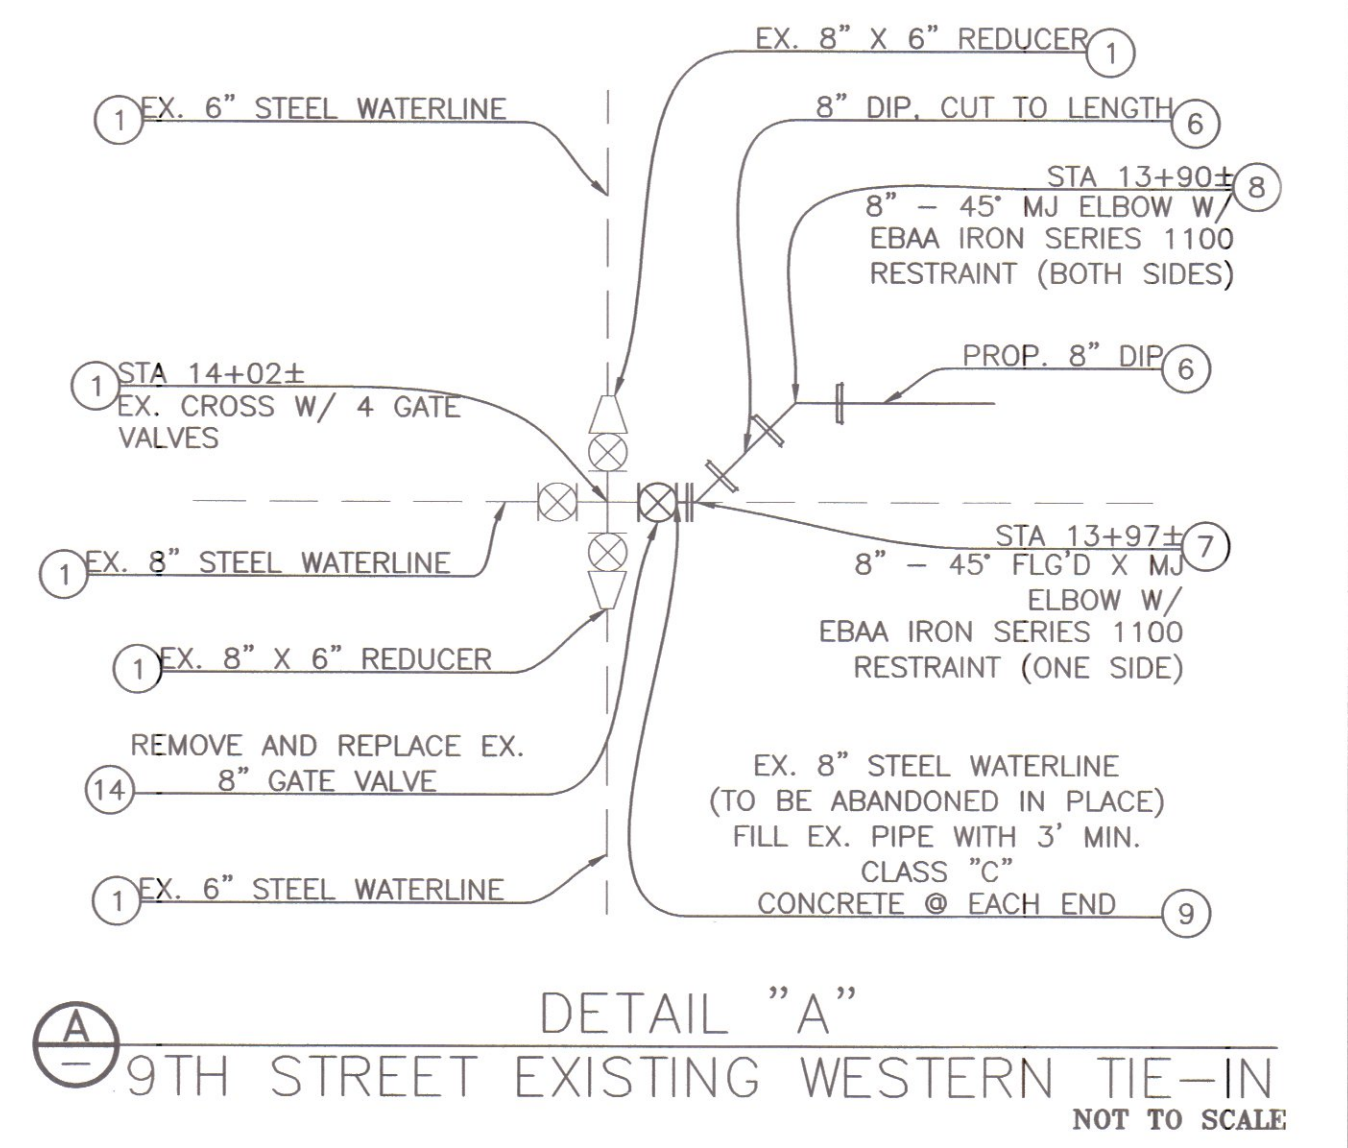 EX. 8" X 6" REDUCER 1
1 EX. 6" STEEL WATERLINE
8" DIP, CUT TO LENGTH 6
STA 13+90± 8
8" – 45° MJ ELBOW W/
EBAA IRON SERIES 1100
RESTRAINT (BOTH SIDES)
PROP. 8" DIP 6
1 STA 14+02±
EX. CROSS W/ 4 GATE
VALVES
STA 13+97± 7
8" – 45° FLG'D X MJ
ELBOW W/
EBAA IRON SERIES 1100
RESTRAINT (ONE SIDE)
1 EX. 8" STEEL WATERLINE
1 EX. 8" X 6" REDUCER
REMOVE AND REPLACE EX.
14 8" GATE VALVE
EX. 8" STEEL WATERLINE
(TO BE ABANDONED IN PLACE)
FILL EX. PIPE WITH 3' MIN.
CLASS "C"
CONCRETE @ EACH END 9
1 EX. 6" STEEL WATERLINE
A
–
DETAIL "A"
9TH STREET EXISTING WESTERN TIE–IN
NOT TO SCALE